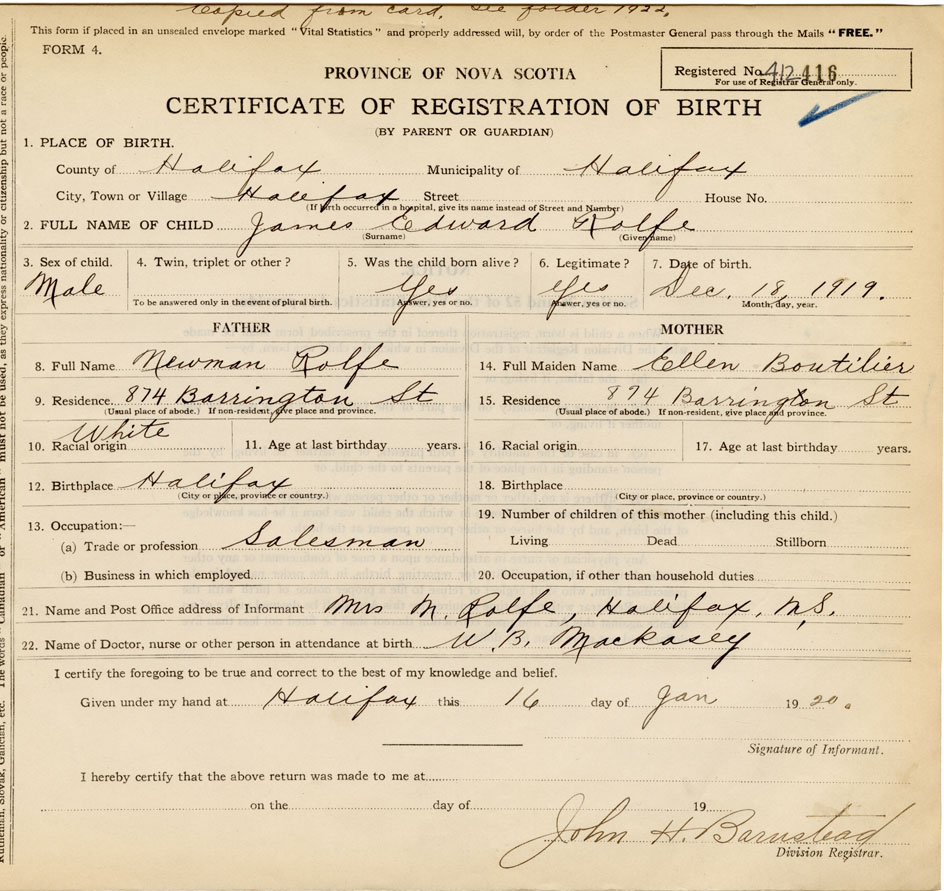 Copied from card, see folder 1922,
This form if placed in an unsealed envelope marked "Vital Statistics" and properly addressed will, by order of the Postmaster General pass through the Mails "FREE."
FORM 4.
Registered No. 416
For use of Registrar General only.
PROVINCE OF NOVA SCOTIA
CERTIFICATE OF REGISTRATION OF BIRTH
(BY PARENT OR GUARDIAN)
1. PLACE OF BIRTH.
County of Halifax Municipality of Halifax
City, Town or Village Halifax Street House No.
(If birth occurred in a hospital, give its name instead of Street and Number)
2. FULL NAME OF CHILD James Edward Rolfe
(Surname) (Given name)
3. Sex of child. 4. Twin, triplet or other? 5. Was the child born alive? 6. Legitimate? 7. Date of birth.
Male Yes Yes Dec. 18, 1919.
To be answered only in the event of plural birth. Answer, yes or no. Answer, yes or no. Month, day, year.
FATHER MOTHER
8. Full Name Newman Rolfe 14. Full Maiden Name Ellen Boutilier
9. Residence 874 Barrington St 15. Residence 874 Barrington St
(Usual place of abode.) If non-resident, give place and province. (Usual place of abode.) If non-resident, give place and province.
White
10. Racial origin 11. Age at last birthday years. 16. Racial origin 17. Age at last birthday years.
12. Birthplace Halifax 18. Birthplace
(City or place, province or country.) (City or place, province or country.)
13. Occupation:— 19. Number of children of this mother (including this child.)
(a) Trade or profession Salesman Living Dead Stillborn
(b) Business in which employed 20. Occupation, if other than household duties
21. Name and Post Office address of Informant Mrs M. Rolfe, Halifax, N.S.
22. Name of Doctor, nurse or other person in attendance at birth W. B. Mackasey
I certify the foregoing to be true and correct to the best of my knowledge and belief.
Given under my hand at Halifax this 16 day of Jan 1920.
Signature of Informant.
I hereby certify that the above return was made to me at
on the day of 19
John H. Barnstead
Division Registrar.